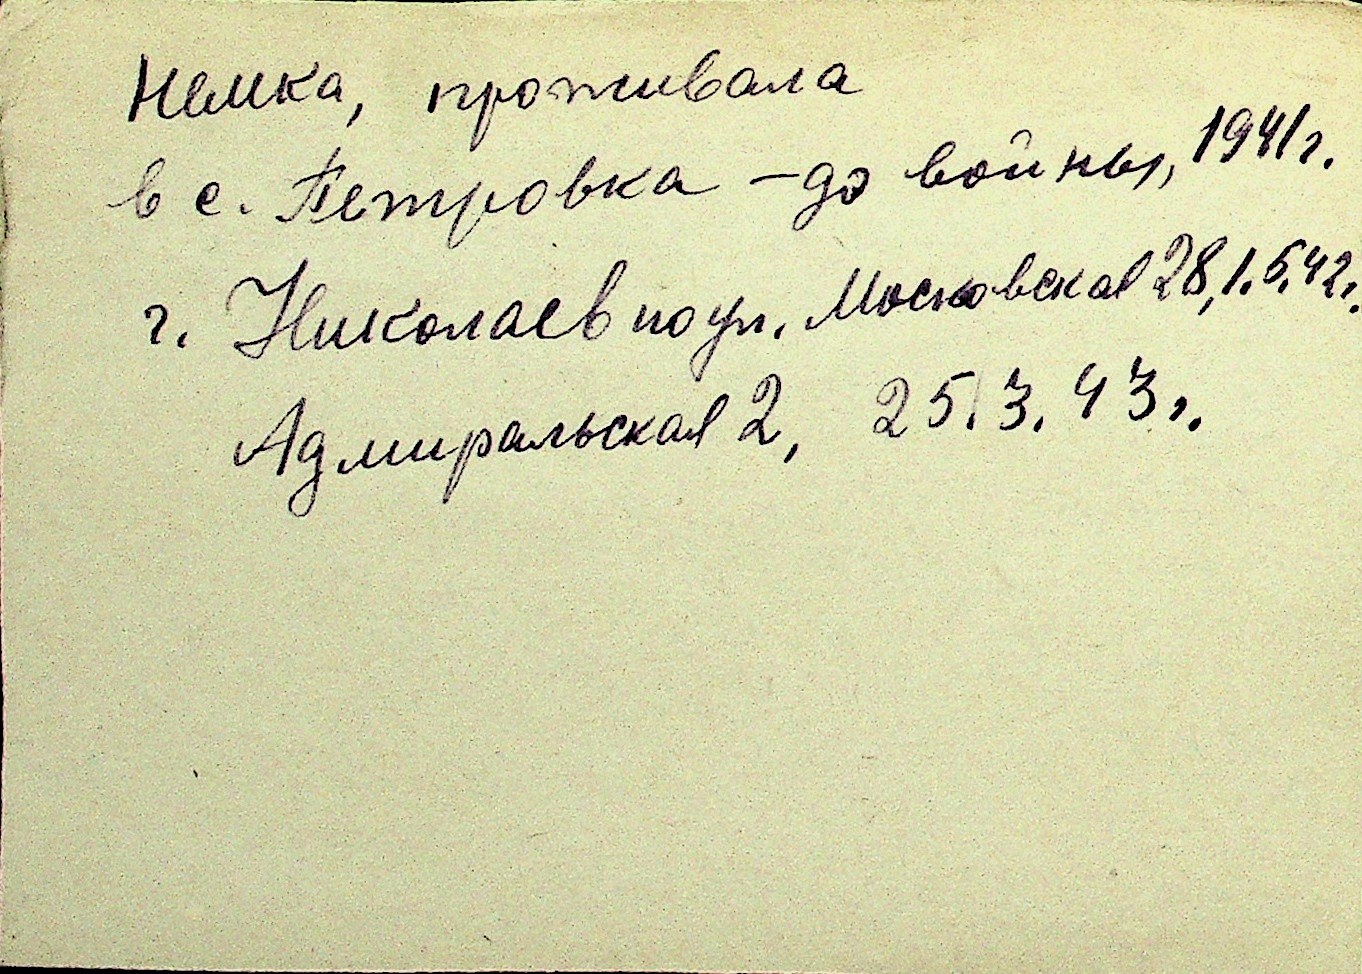 Немка, проживала
в с. Петровка – до войны, 1941 г.
г. Николаев по ул. Московская 28, 1.5.42 г.
Адмиральская 2, 25.3.43 г.